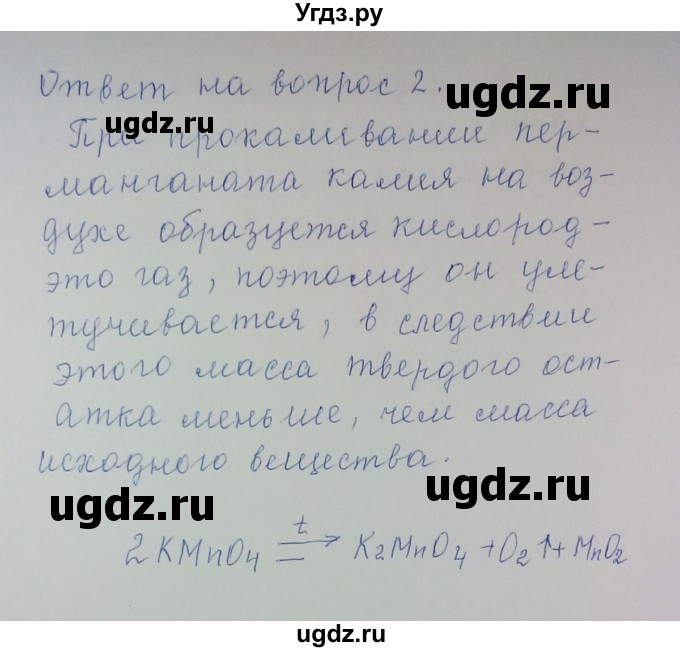 Угдз.ру
Ответ на вопрос 2.
ugdz.ru
ugdz.ru
При прокаливании пер-
манганата калия на воз-
духе образуется кислород-
это газ, поэтому он уле-
тучивается, в следствии
этого масса твердого ост-
атка меньше, чем масса
исходного вещества.
ugdz.ru
ugdz.ru
2KMnO4 =t→ K2MnO4 + O2↑ + MnO2
ugdz.ru